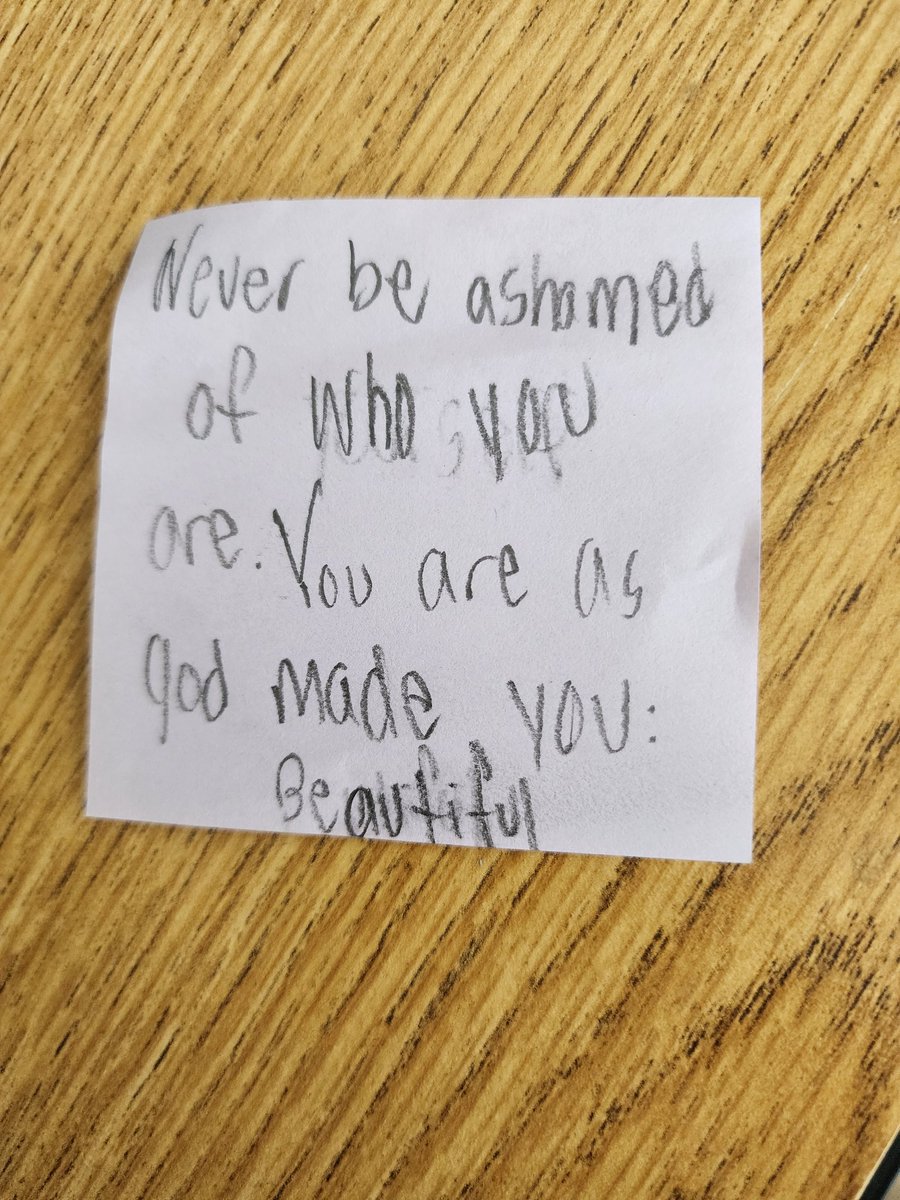 Never be ashamed
of who you
are. You are as
god made you:
Beautiful